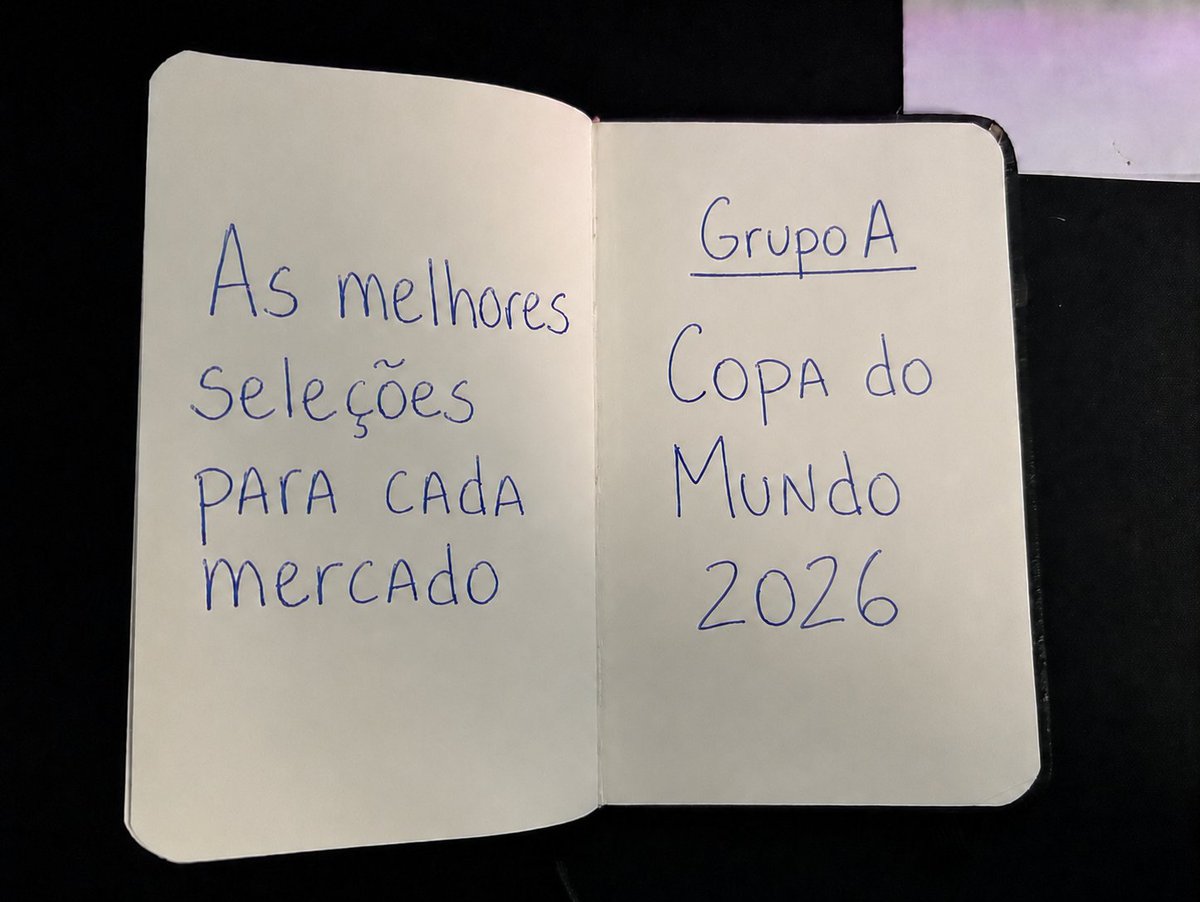 As melhores
seleções
para cada
mercado
Grupo A
Copa do
Mundo
2026